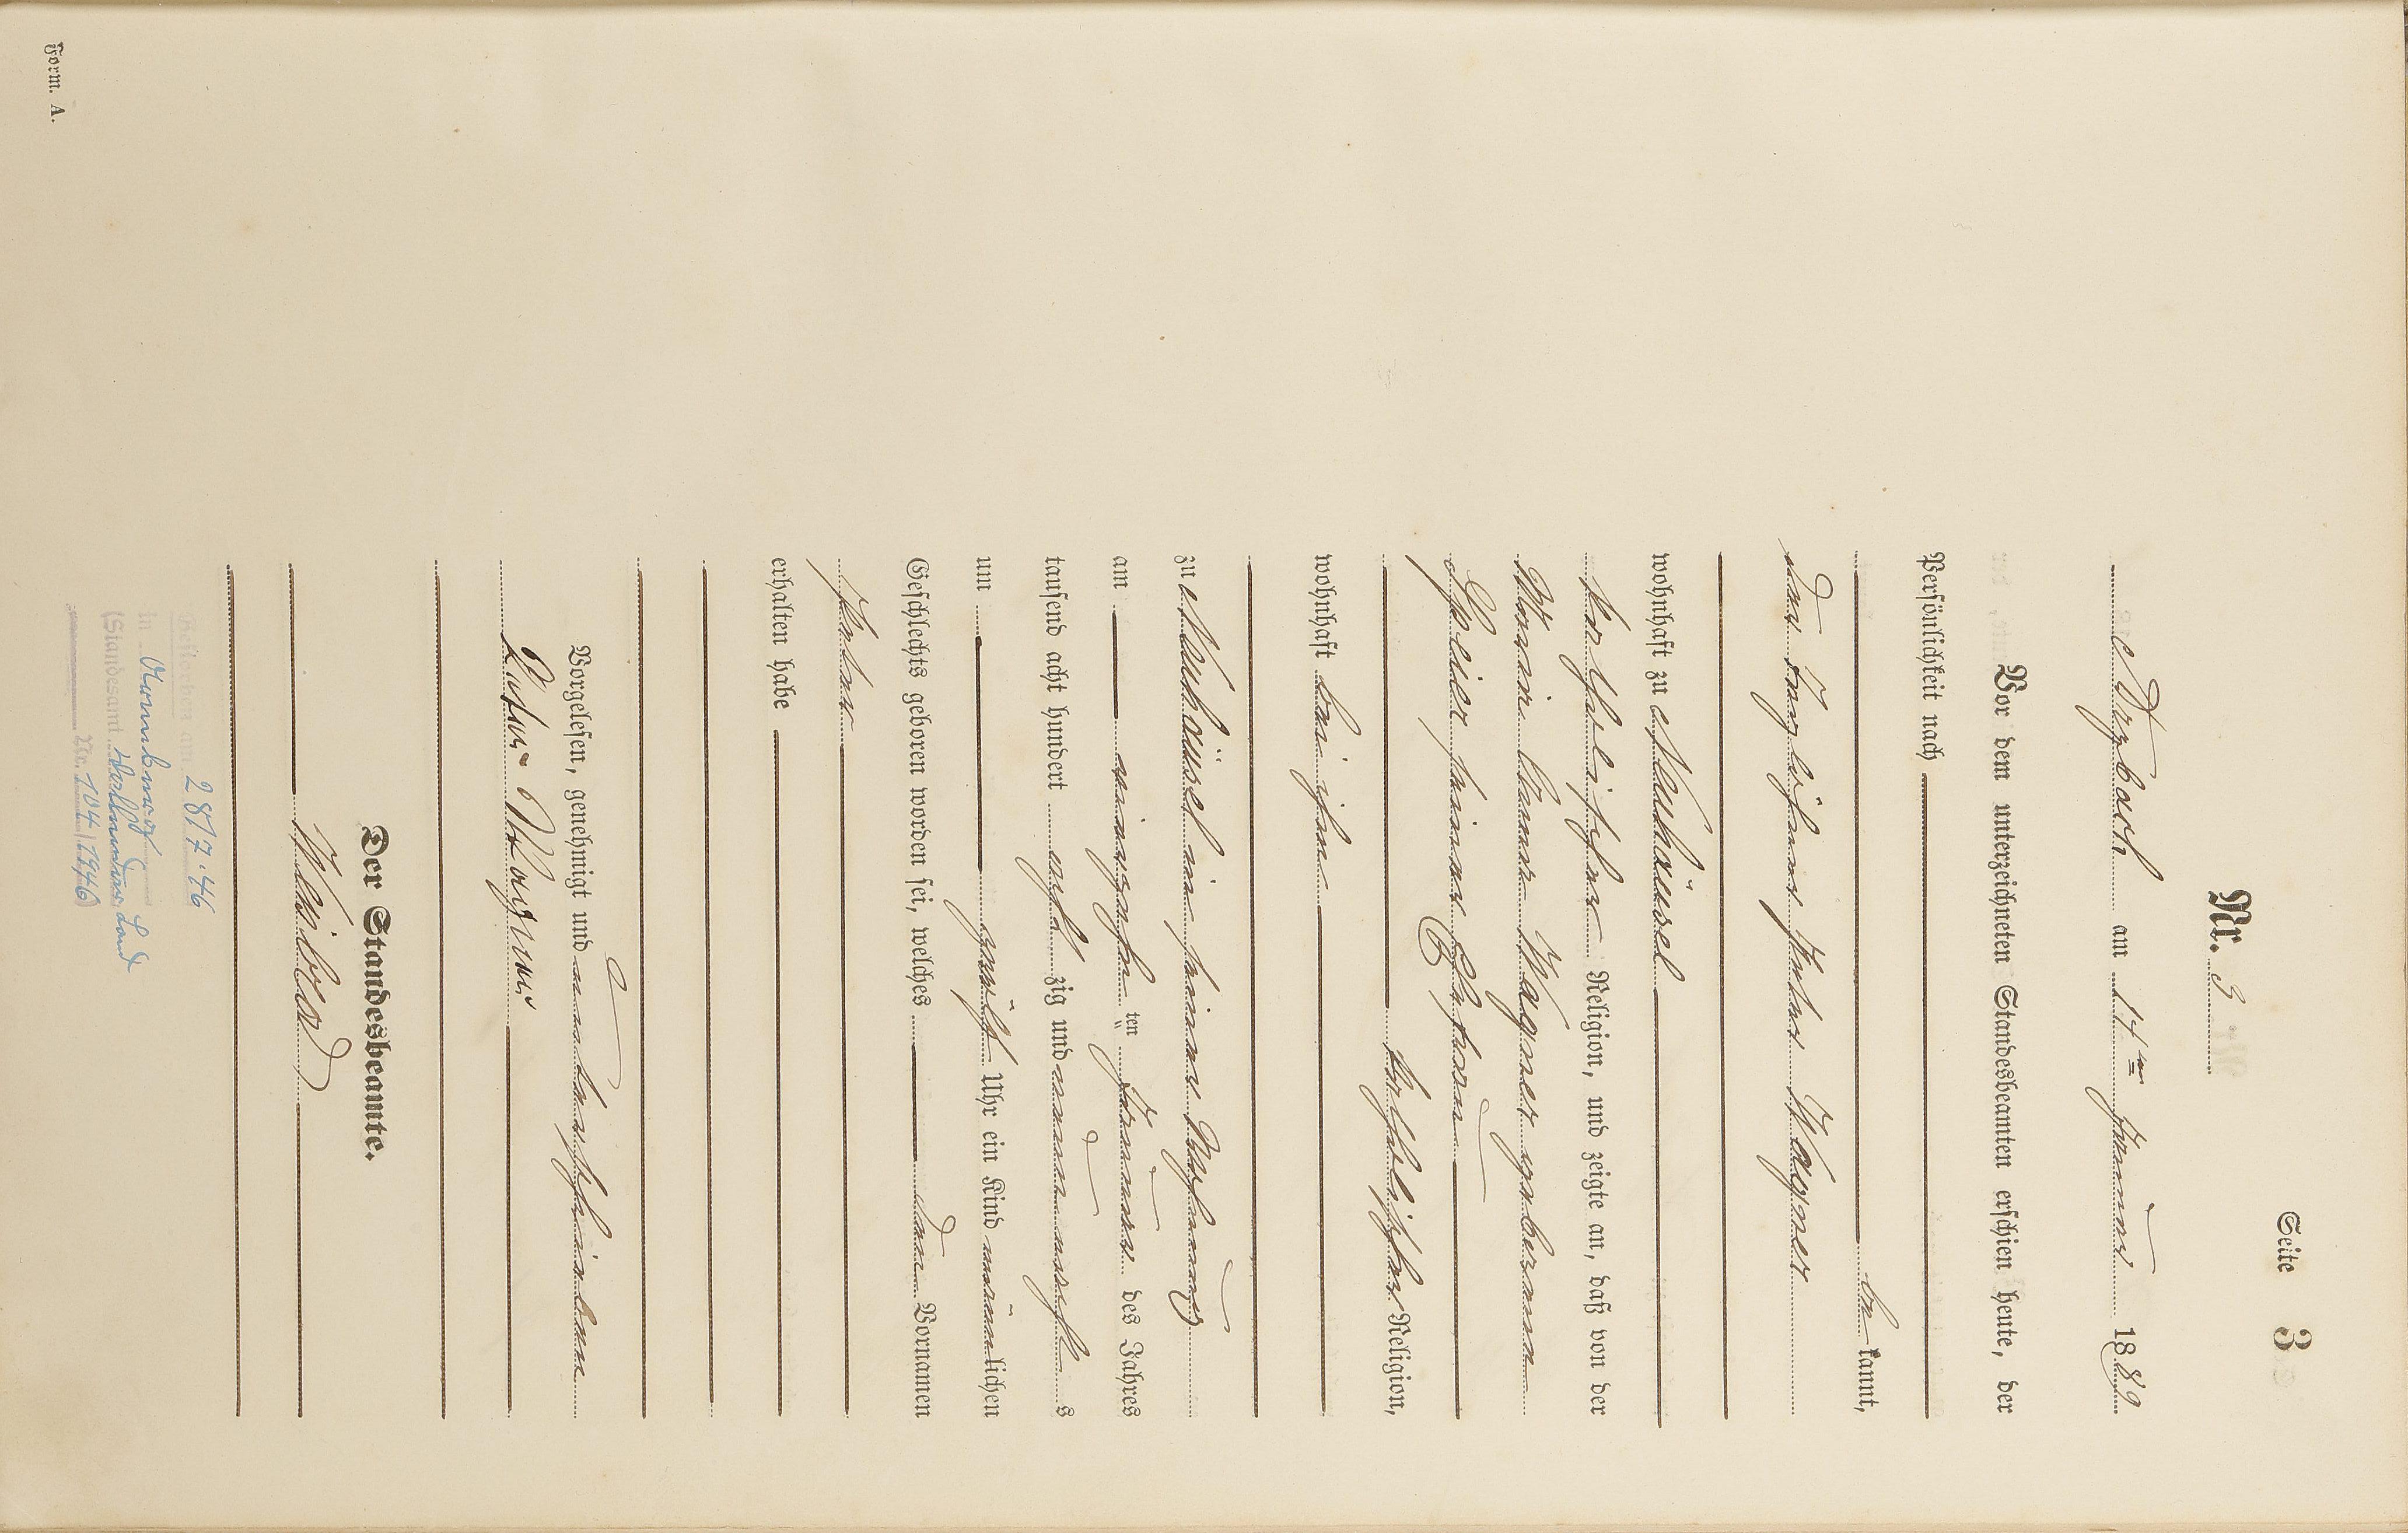 Seite 3
Nr. 3
Arzbach am 14ten Januar 1889
Vor dem unterzeichneten Standesbeamten erschien heute, der
Persönlichkeit nach
be kannt,
der Tagelöhner Peter Wagner
wohnhaft zu Neuhäusel
katholischer Religion, und zeigte an, daß von der
Maria Anna Wagner geborenen
Speier seiner Ehefrau
katholischer Religion,
wohnhaft bei ihm
zu Neuhäusel in seiner Wohnung
am ten Januar des Jahres
tausend acht hundert acht zig und neun
um zwölf Uhr ein Kind männlichen
Geschlechts geboren worden sei, welches den Vornamen
Peter
erhalten habe
Vorgelesen, genehmigt und unterschrieben
Peter Wagner
Der Standesbeamte.
Gestorben am 28/7.46
in
(Standesamt Land
Nr. 104/1946)
Form. A.